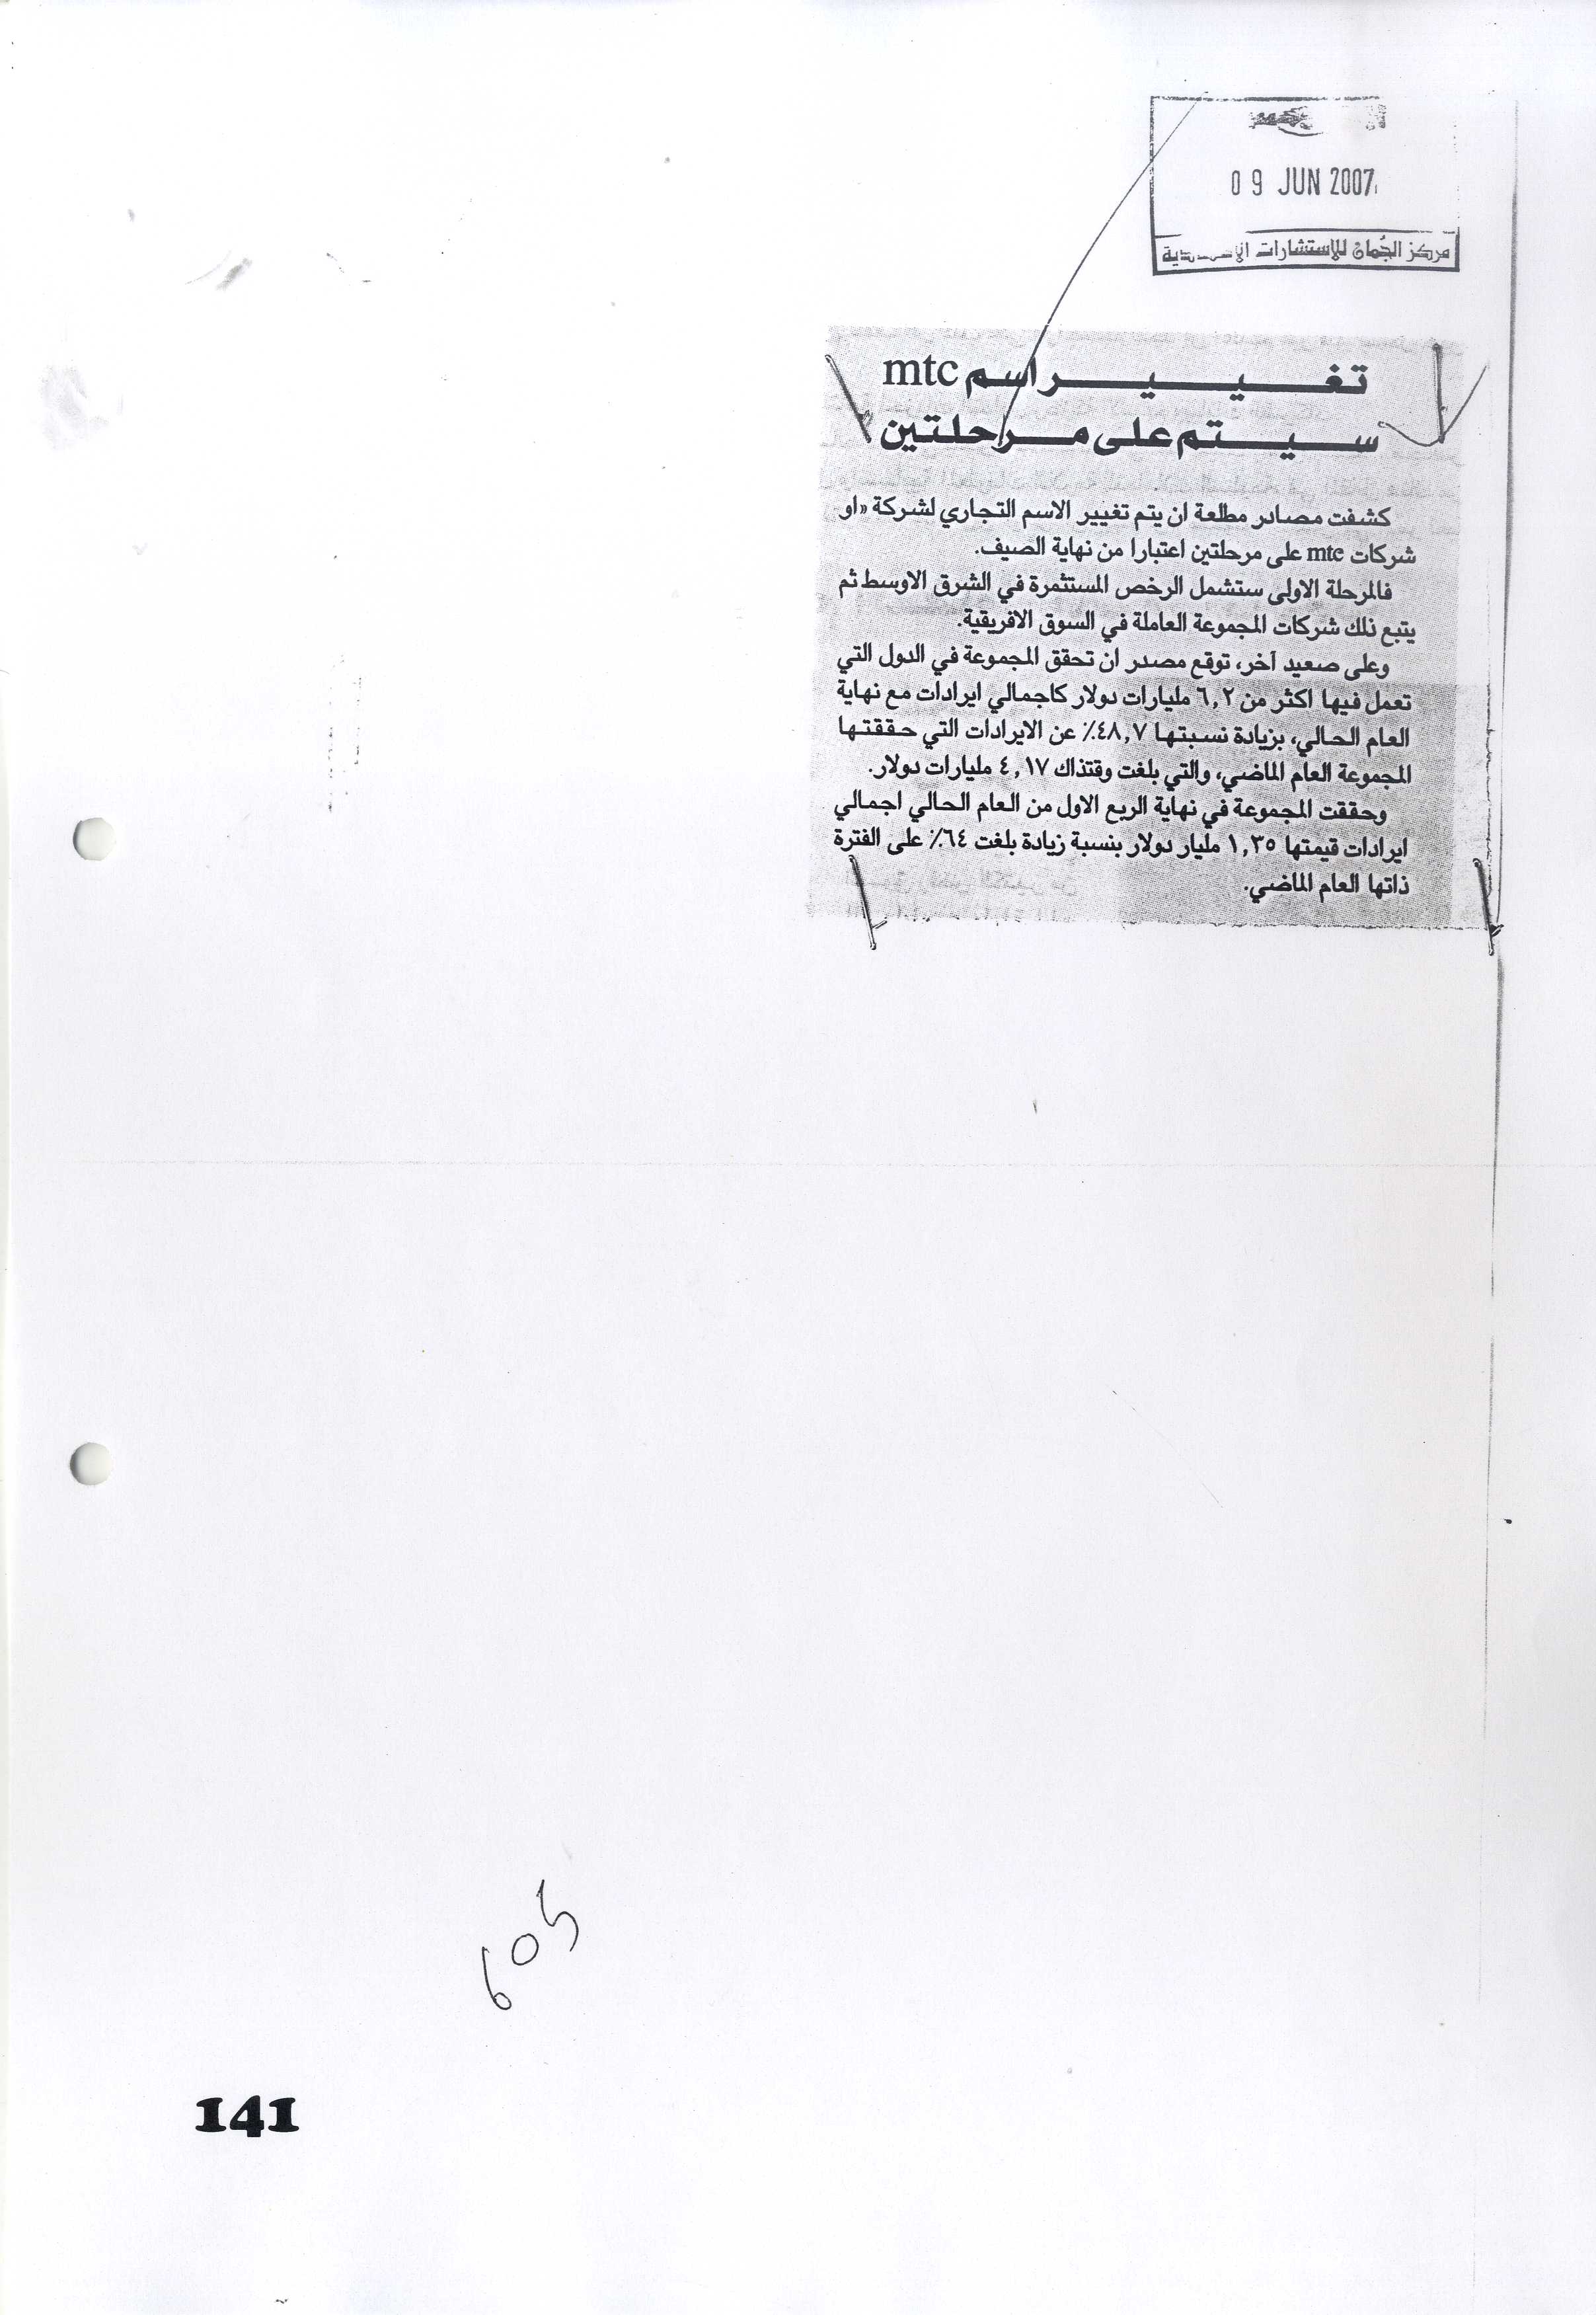 09 JUN 2007
مركز الجُمان للاستشارات
تغيير اسم mtc
سيتم على مرحلتين
كشفت مصادر مطلعة ان يتم تغيير الاسم التجاري لشركة «او
شركات mtc على مرحلتين اعتبارا من نهاية الصيف.
فالمرحلة الاولى ستشمل الرخص المستثمرة في الشرق الاوسط ثم
يتبع ذلك شركات المجموعة العاملة في السوق الافريقية.
وعلى صعيد آخر، توقع مصدر ان تحقق المجموعة في الدول التي
تعمل فيها اكثر من ٦,٢ مليارات دولار كاجمالي ايرادات مع نهاية
العام الحالي، بزيادة نسبتها ٤٨,٧٪ عن الايرادات التي حققتها
المجموعة العام الماضي، والتي بلغت وقتذاك ٤,١٧ مليارات دولار.
وحققت المجموعة في نهاية الربع الاول من العام الحالي اجمالي
ايرادات قيمتها ١,٣٥ مليار دولار بنسبة زيادة بلغت ٦٤٪ على الفترة
ذاتها العام الماضي.
605
141